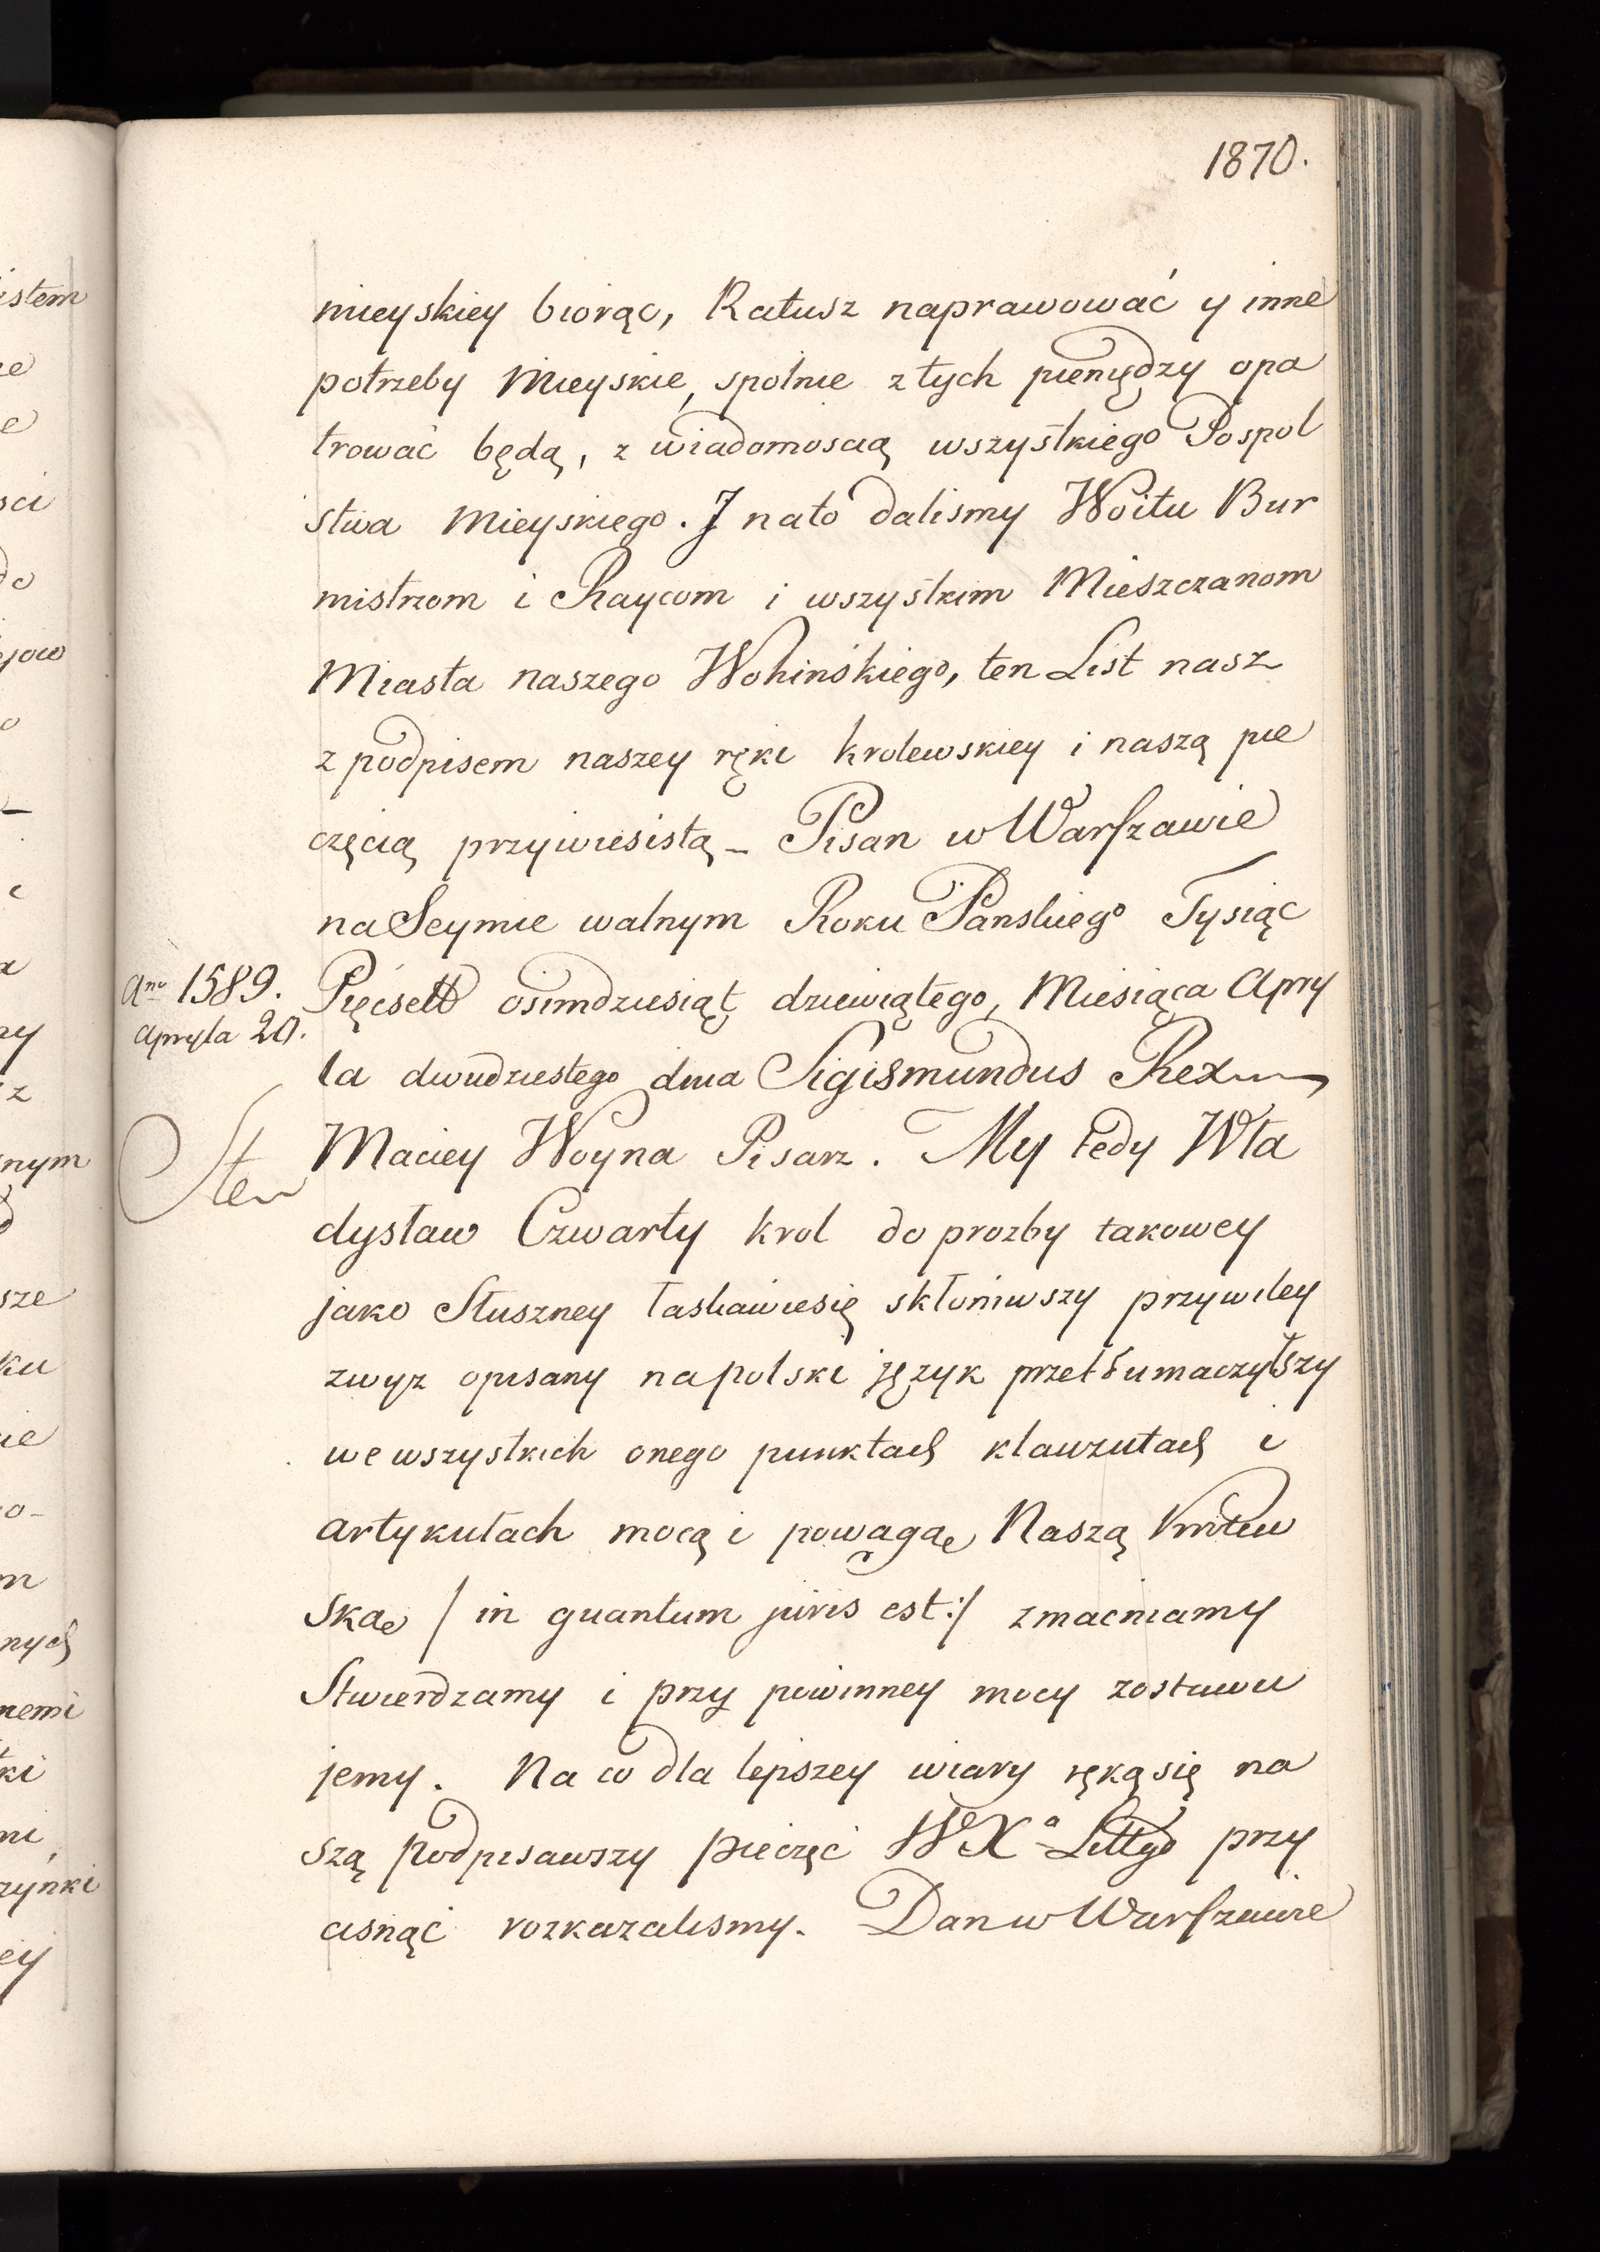 1870.
mieyskiey biorąc, Ratusz naprawować y inne
potrzeby Mieyskie, spolnie z tych pieniędzy opa
trować będą, z wiadomoscią wszystkiego Pospol
stwa Mieyskiego. J nato dalismy Woitu Bur
mistrzom i Raycom i wszystkim Mieszczanom
Miasta naszego Wohinskiego, ten List nasz
z podpisem naszey ręki krolewskiey i naszą pie
częcią przywiesistą _ Pisan w Warszawie
na Seymie walnym Roku Panskiego Tysiąc
Ano 1589. Pięcsett osimdziesiąt dziewiątego, Miesiąca Apry
Apryla 20.
la dwudziestego dnia Sigismundus Rex
Maciey Woyna Pisarz. My tedy Wła
dysław Czwarty krol do prozby takowey
jako Słuszney łaskawiesię skłoniwszy przywiley
zwyz opisany napolski język przetłumaczywszy
we wszystkich onego punktach klauzułach i
artykułach mocą i powagą Naszą Krolew
ską / in quantum juris est :/ zmacniamy
Stwierdzamy i przy powinney mocy zostawu
jemy. Na co dla lepszey wiary ręką się na
szą podpisawszy pieczęć W Xa Littgo przy
cisnąć rozkazalismy. Dan w Warszawie